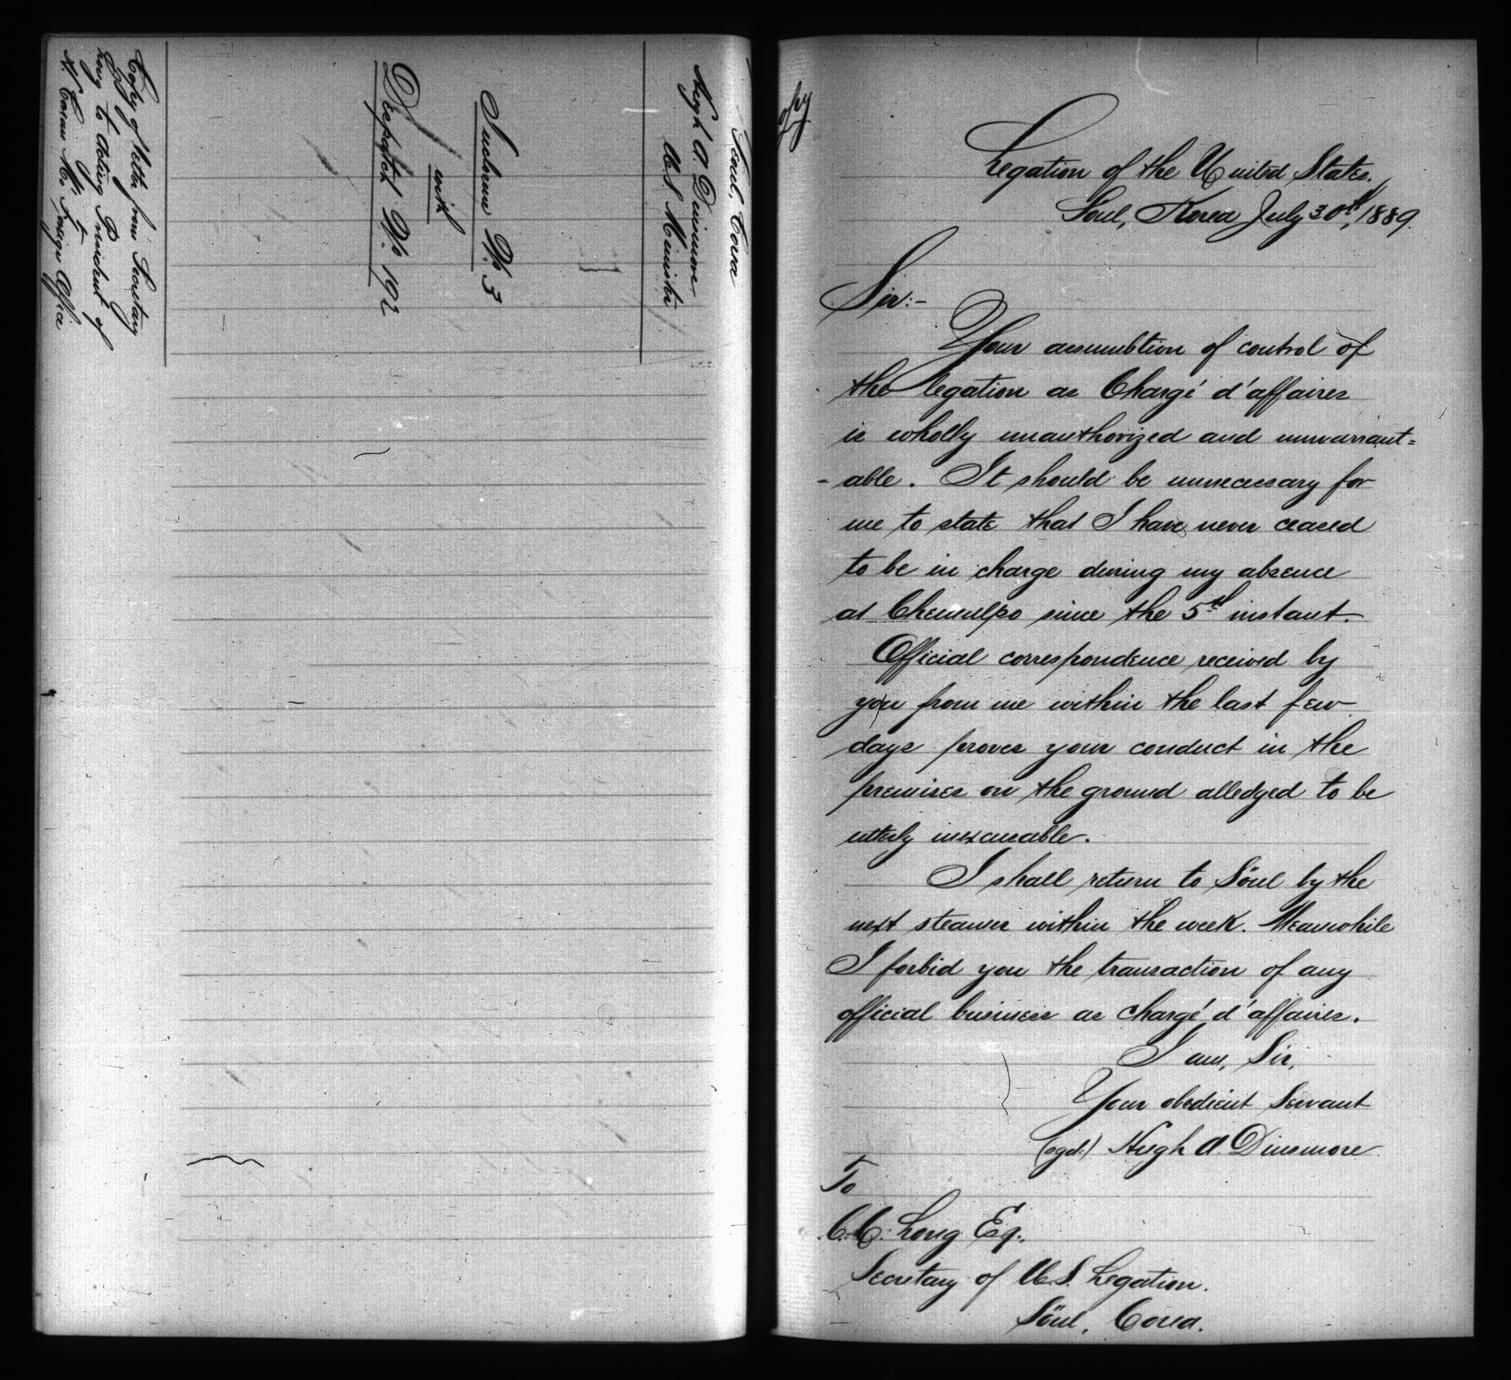 Seoul, Corea
Hugh A. Dinsmore
U.S. Minister
Inclosure No. 3
with
Dispatch No. 192
Copy of letter from Secretary
Long to Acting President of
H. Corean M's Foreign Office
Copy
Legation of the United States.
Soul, Korea July 30th, 1889.
Sir:-
Your assumbtion of control of
the legation as Chargé d'affaires
is wholly unauthorized and unwarrant=
-able. It should be unnecessary for
me to state that I have never ceased
to be in charge during my absence
at Chemulpo since the 5th instant.
Official correspondence received by
you from me within the last few
days proves your conduct in the
premises on the ground alledged to be
utterly inexcusable.
I shall return to Söul by the
next steamer within the week. Meanwhile
I forbid you the transaction of any
official business as chargé d'affaires.
I am, Sir,
Your obedient Servant
(sgd.) Hugh A. Dinsmore
To
C.C. Long Esq.,
Secretary of U.S. Legation.
Söul, Corea.